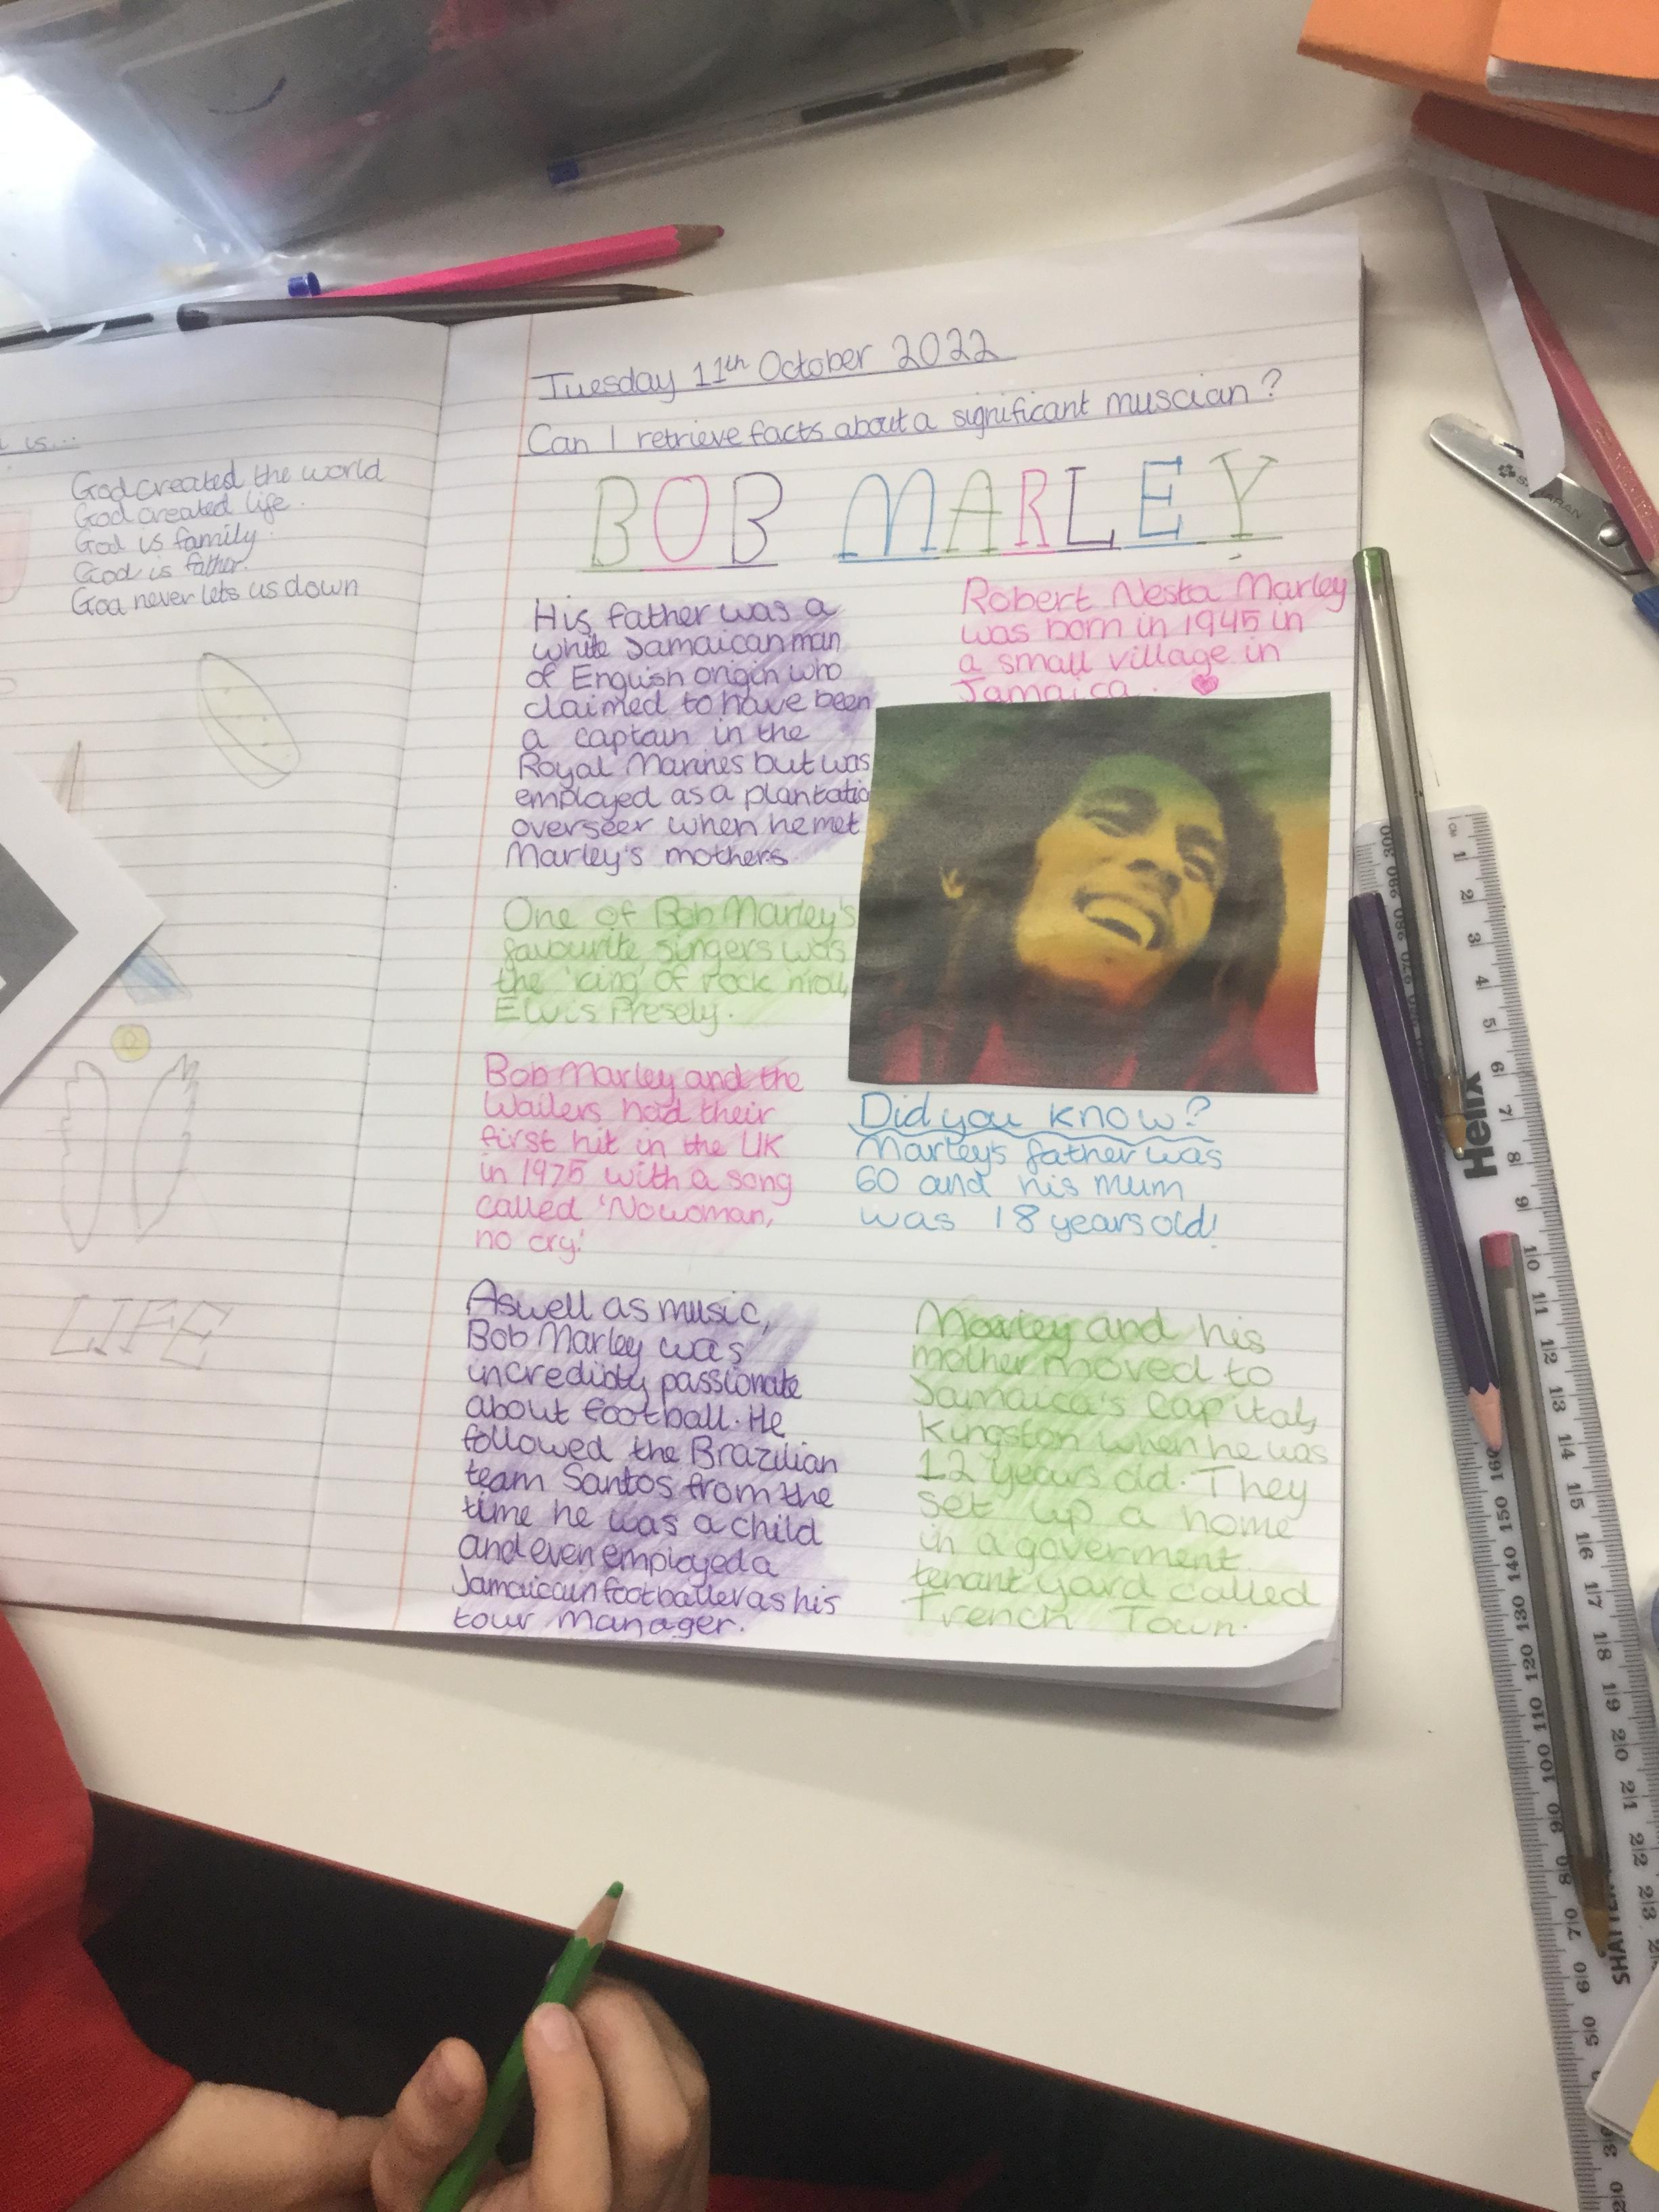 d is...
God created the world
God created life.
God is family.
God is father.
God never lets us down
LIFE
Tuesday 11th October 2022
Can I retrieve facts about a significant muscian?
BOB MARLEY
His father was a
white Jamaican man
of English origin who
claimed to have been
a captain in the
Royal Marines but was
employed as a plantatio
overseer when he met
Marley's mothers.
One of Bob Marley's
favourite singers was
the 'king' of rock nroll,
Elvis Presely.
Bob Marley and the
Wailers had their
first hit in the UK
in 1975 with a song
called 'No woman,
no cry.'
Aswell as music,
Bob Marley was
incredibly passionate
about football. He
followed the Brazilian
team Santos from the
time he was a child
and even employed a
Jamaican footballer as his
tour manager.
Robert Nesta Marley
was born in 1945 in
a small village in
Jamaica.
Did you know?
Marley's father was
60 and his mum
was 18 years old!
Marley and his
mother moved to
Jamaica's capital,
Kingston when he was
12 years old. They
set up a home
in a goverment
tenant yard called
Trench Town.
Helix
CM 1 2 3 4 5 6 7 8 9 10 11 12 13 14 15 16 17 18 19 20 21 22 23
300 290 280 270
160 150 140 130 120 110 100 90 80 70 60 50